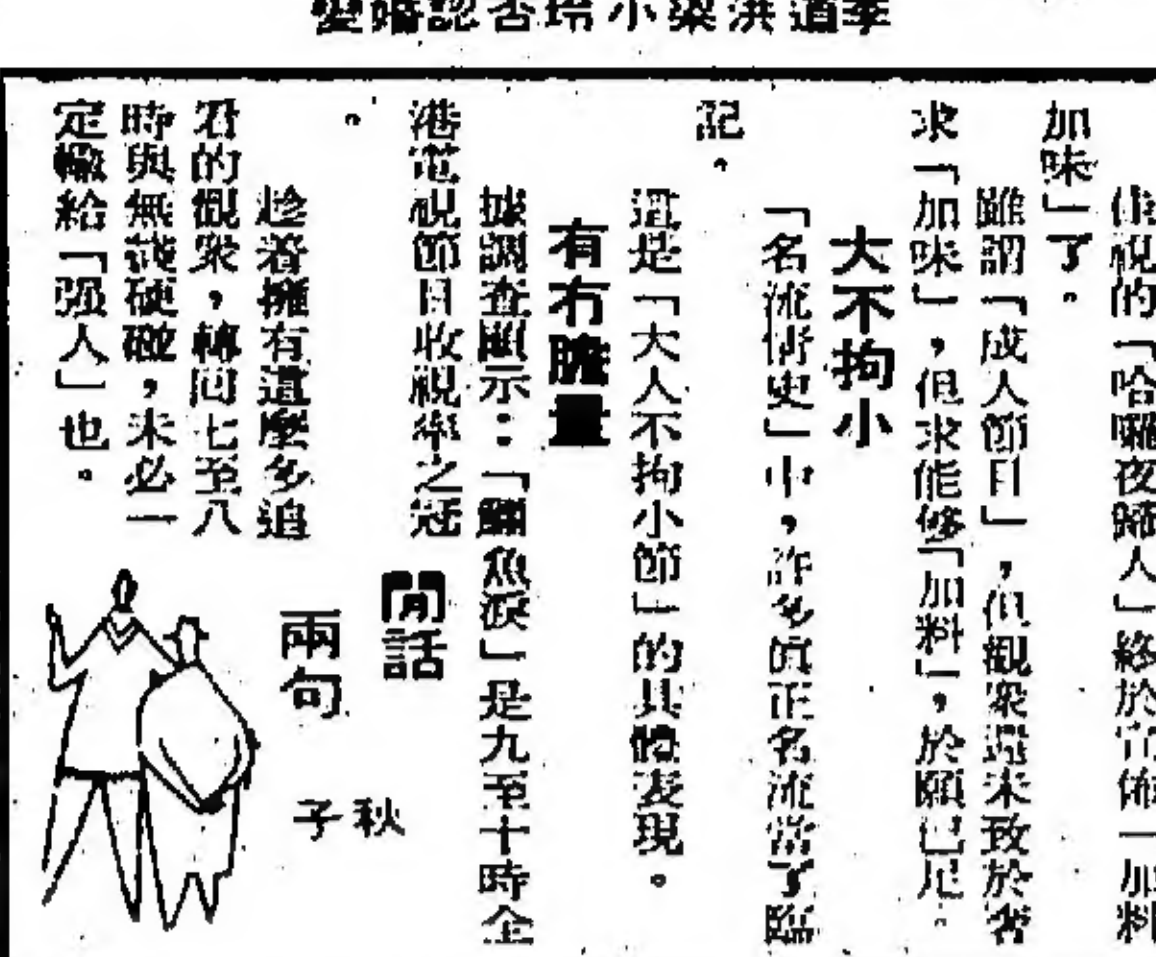 李道洪梁小玲否認婚變
佳視的「哈囉夜歸人」終於宣佈「加料
加味」了。
雖謂「成人節目」，但觀衆還未致於奢
求「加味」，但求能够「加料」，於願已足。
大不拘小
「名流情史」中，許多眞正名流當了臨
記。
這是「大人不拘小節」的具體表現。
有冇膽量
據調查顯示：「鱷魚淚」是九至十時全
港電視節目收視率之冠
。
趁着擁有這麼多追
看的觀衆，轉回七至八
時與無綫硬碰，未必一
定輸給「强人」也。
閒話
兩句
秋子